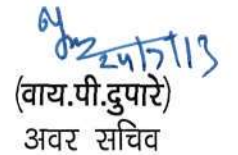 24/7/13
(वाय.पी.दुपारे)
अवर सचिव